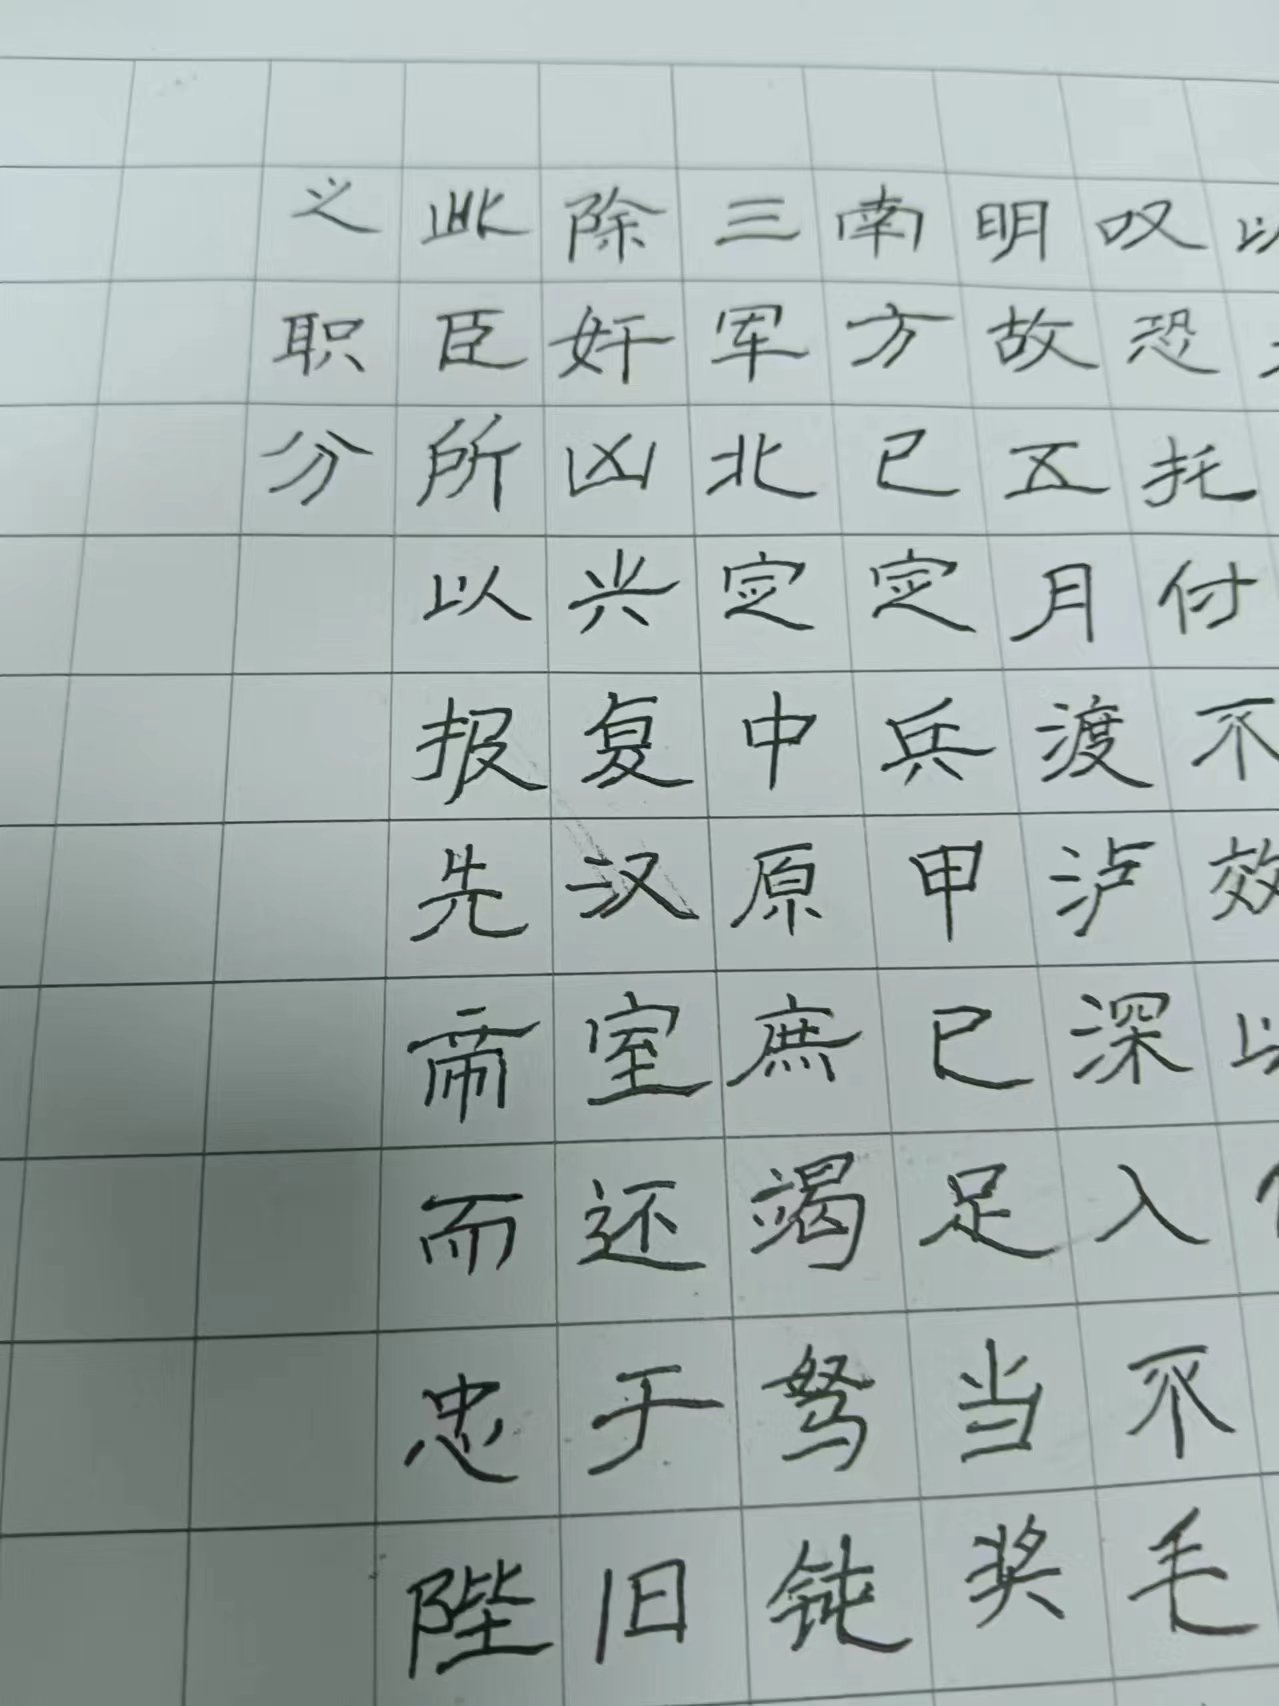 以
叹恐托付不效以不毛
明故五月渡泸深入不毛
南方已定兵甲已足当奖
三军北定中原庶竭驽钝
除奸凶兴复汉室还于旧
此臣所以报先帝而忠陛
之职分